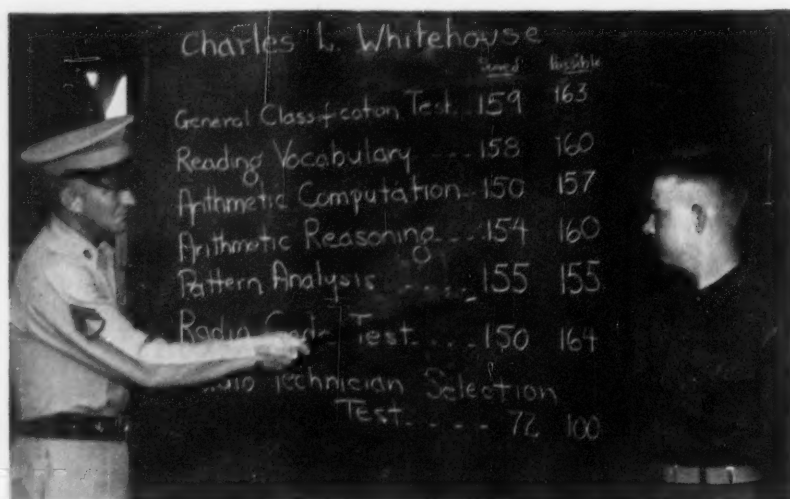 Charles L. Whitehouse
Scored Possible
General Classification Test.. 159 163
Reading Vocabulary ... 158 160
Arithmetic Computation.. 150 157
Arithmetic Reasoning.... 154 160
Pattern Analysis .... 155 155
Radio Code Test.... 150 164
Radio Technician Selection
Test..... 72 100